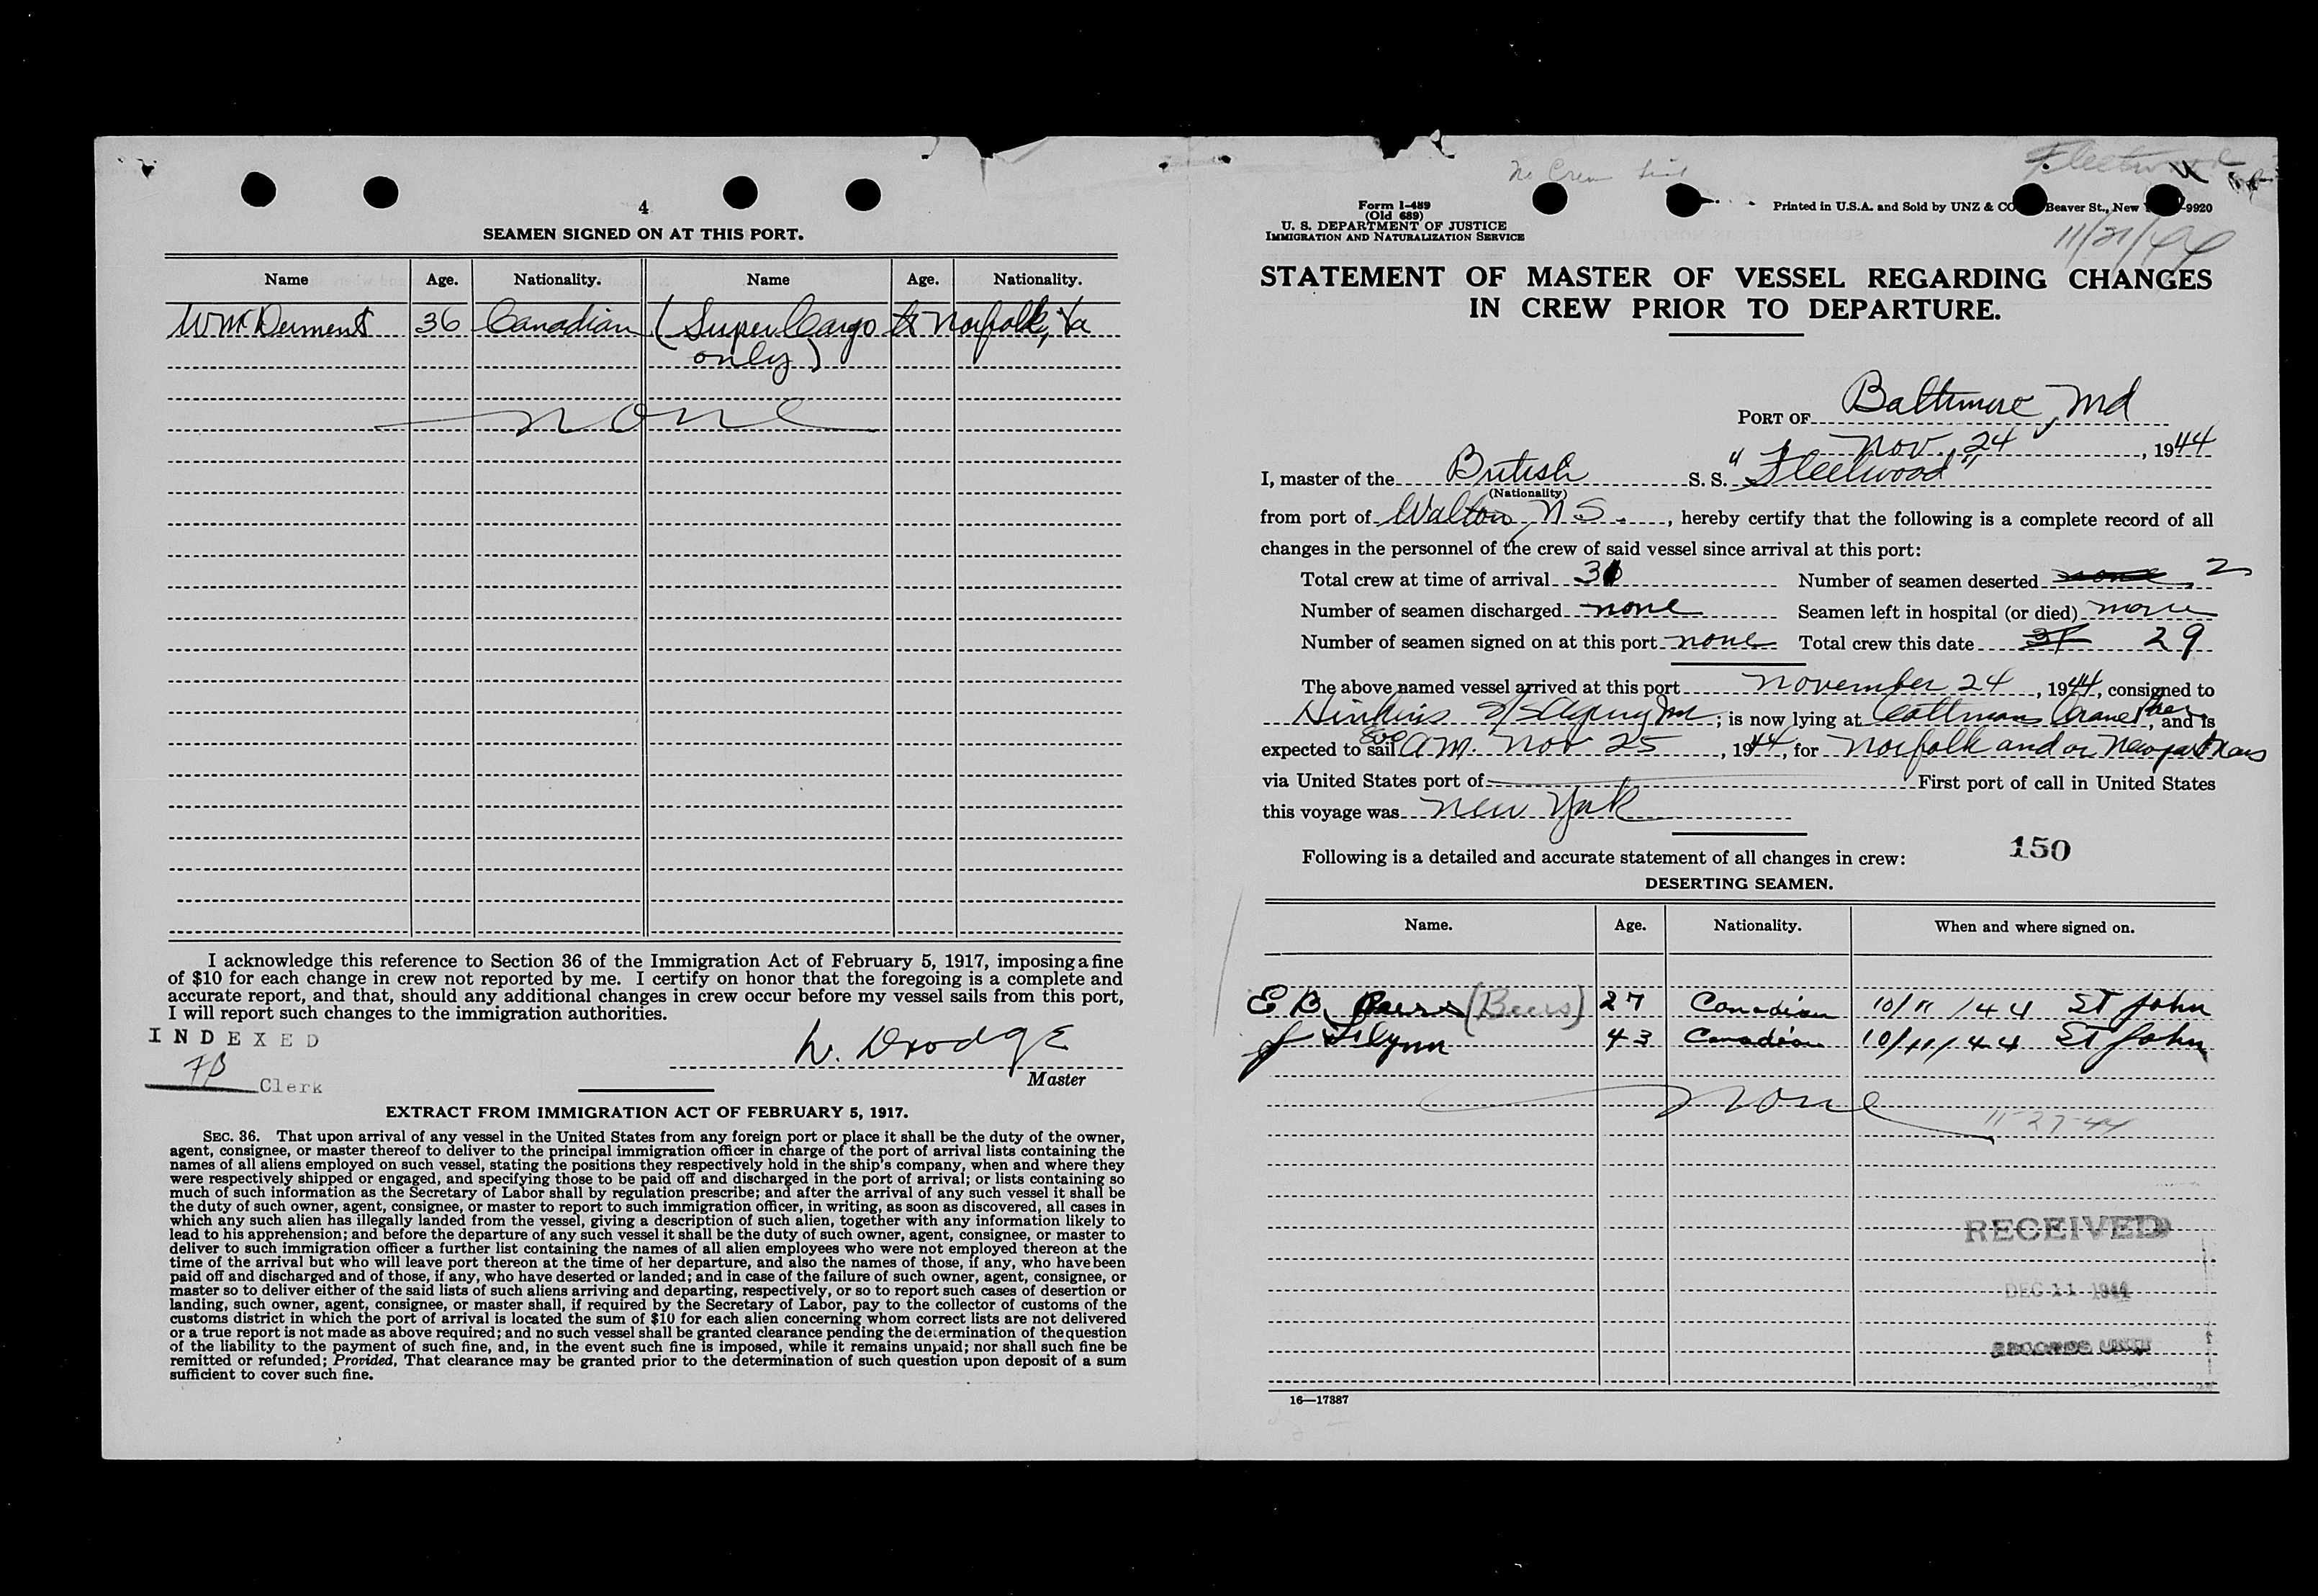 4
SEAMEN SIGNED ON AT THIS PORT.
Name Age. Nationality. Name Age. Nationality.
Wm. Derment 36 Canadian (Super Cargo to Norfolk, Va
only)
none
I acknowledge this reference to Section 36 of the Immigration Act of February 5, 1917, imposing a fine
of $10 for each change in crew not reported by me. I certify on honor that the foregoing is a complete and
accurate report, and that, should any additional changes in crew occur before my vessel sails from this port,
I will report such changes to the immigration authorities.
INDEXED
FB Clerk
W. Drodge
Master
EXTRACT FROM IMMIGRATION ACT OF FEBRUARY 5, 1917.
SEC. 36. That upon arrival of any vessel in the United States from any foreign port or place it shall be the duty of the owner,
agent, consignee, or master thereof to deliver to the principal immigration officer in charge of the port of arrival lists containing the
names of all aliens employed on such vessel, stating the positions they respectively hold in the ship's company, when and where they
were respectively shipped or engaged, and specifying those to be paid off and discharged in the port of arrival; or lists containing so
much of such information as the Secretary of Labor shall by regulation prescribe; and after the arrival of any such vessel it shall be
the duty of such owner, agent, consignee, or master to report to such immigration officer, in writing, as soon as discovered, all cases in
which any such alien has illegally landed from the vessel, giving a description of such alien, together with any information likely to
lead to his apprehension; and before the departure of any such vessel it shall be the duty of such owner, agent, consignee, or master to
deliver to such immigration officer a further list containing the names of all alien employees who were not employed thereon at the
time of the arrival but who will leave port thereon at the time of her departure, and also the names of those, if any, who have been
paid off and discharged and of those, if any, who have deserted or landed; and in case of the failure of such owner, agent, consignee, or
master so to deliver either of the said lists of such aliens arriving and departing, respectively, or so to report such cases of desertion or
landing, such owner, agent, consignee, or master shall, if required by the Secretary of Labor, pay to the collector of customs of the
customs district in which the port of arrival is located the sum of $10 for each alien concerning whom correct lists are not delivered
or a true report is not made as above required; and no such vessel shall be granted clearance pending the determination of the question
of the liability to the payment of such fine, and, in the event such fine is imposed, while it remains unpaid; nor shall such fine be
remitted or refunded; Provided, That clearance may be granted prior to the determination of such question upon deposit of a sum
sufficient to cover such fine.
No Crew List
Fleetwood
Form I-489
(Old 689)
U. S. DEPARTMENT OF JUSTICE
IMMIGRATION AND NATURALIZATION SERVICE
Printed in U.S.A. and Sold by UNZ & CO Beaver St., New -9920
11/21/44
STATEMENT OF MASTER OF VESSEL REGARDING CHANGES
IN CREW PRIOR TO DEPARTURE.
PORT OF Baltimore, Md
Nov. 24, 1944
I, master of the British S. S. "Fleetwood"
(Nationality)
from port of Walton N.S., hereby certify that the following is a complete record of all
changes in the personnel of the crew of said vessel since arrival at this port:
Total crew at time of arrival 31 Number of seamen deserted none 2
Number of seamen discharged none Seamen left in hospital (or died) none
Number of seamen signed on at this port none Total crew this date 31 29
The above named vessel arrived at this port November 24, 1944, consigned to
S/S Agency Inc; is now lying at Cottmans Crane Pier, and is
expected to sail 8:00 a.m. Nov 25, 1944, for Norfolk and or Newport News
via United States port of First port of call in United States
this voyage was New York
150
Following is a detailed and accurate statement of all changes in crew:
DESERTING SEAMEN.
Name. Age. Nationality. When and where signed on.
E B. (Beers) 27 Canadian 10/11/44 St John
J Flynn 43 Canadian 10/11/44 St John
none
11-27-44
RECEIVED
DEC 11 1944
RECORDS UNIT
16—17387